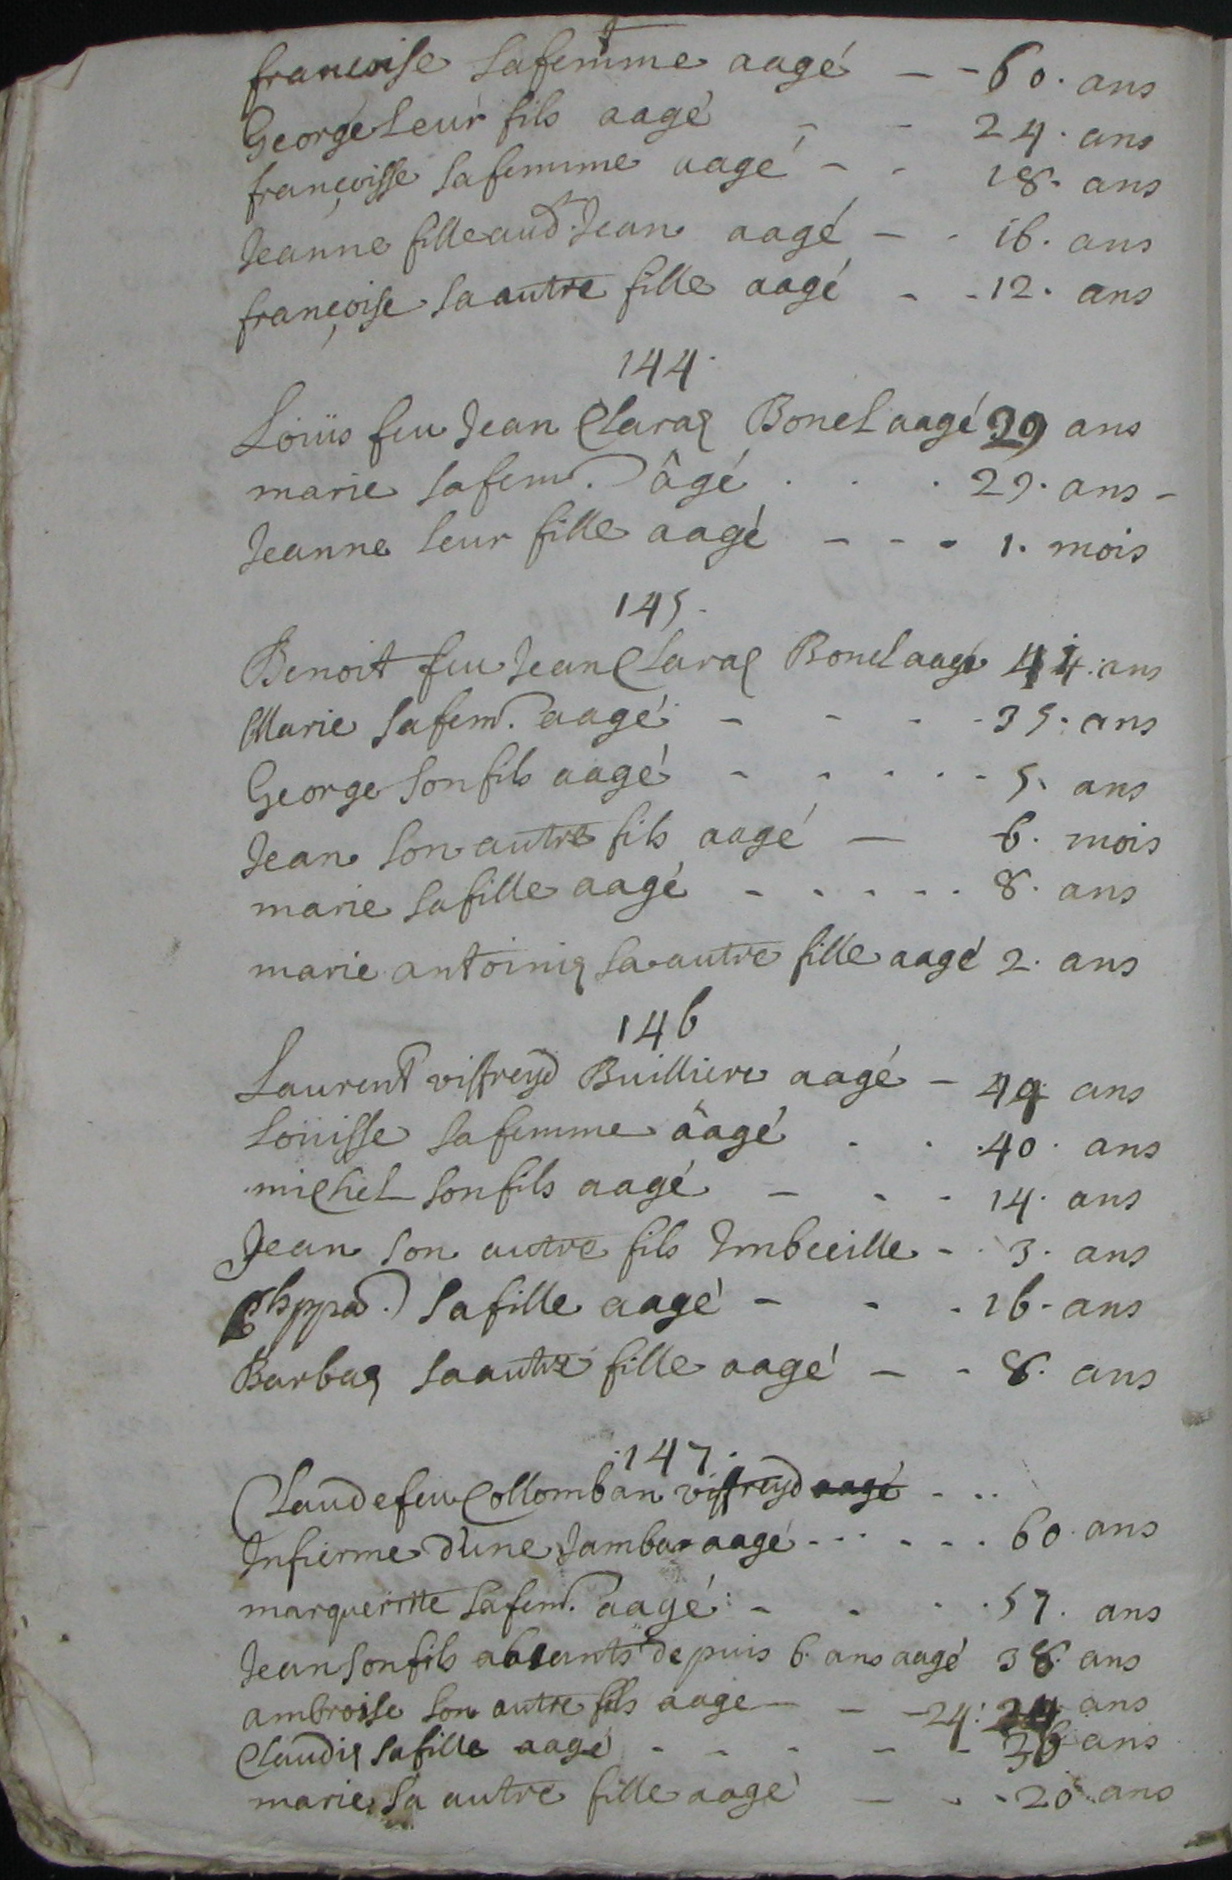 francoise sa femme aagé - - 60. ans
George Leur fils aagé - - 24. ans
françoisse sa femme aagé - - 18. ans
Jeanne fille aud. Jean aagé - - 16. ans
françoise sa autre fille aagé - - 12. ans
144.
Loüis feu Jean Claraz Bonel aagé 39 ans
marie sa fem. âgé . . . 29. ans -
Jeanne leur fille aagé - - - 1. mois
145.
Benoit feu Jean Claraz Bonel aagé 44. ans
Marie sa fem. aagé - - - - 35. ans
George son fils aagé - - - - - 5. ans
Jean son autre fils aagé - 6. mois
marie sa fille aagé - - - - - 8. ans
marie antoiniaz sa autre fille aagé 2. ans
146
Laurent viffreyd Builliere aagé - 44 ans
Loüisse sa femme âagé . . . 40. ans
michel son fils aagé - - - 14. ans
Jean son autre fils Imbecille - . 3. ans
phppa. sa fille aagé - - - 16. ans
Barbaz sa autre fille aagé - - 8. ans
.147.
Claude feu Collomban viffreyd aagé - ..
Infierme d'une Jamba aagé - - - - - - 60. ans
margueritte sa fem. aagé: - - - . 57. ans
Jean son fils absants depuis 6. ans aagé 38. ans
ambroise son autre fils aage - - - 24: 24 ans
Claudiaz sa fille aagé - - - - - 36 ans
marie sa autre fille aagé - - - 20. ans